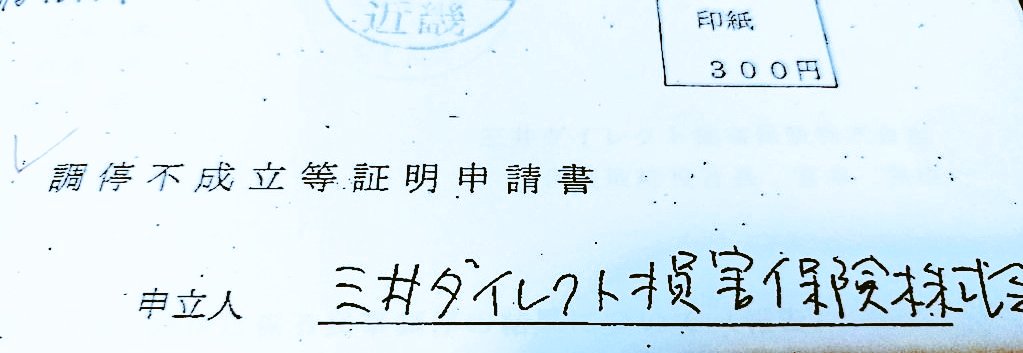 近畿
印紙
300円
調停不成立等証明申請書
申立人 三井ダイレクト損害保険株式会